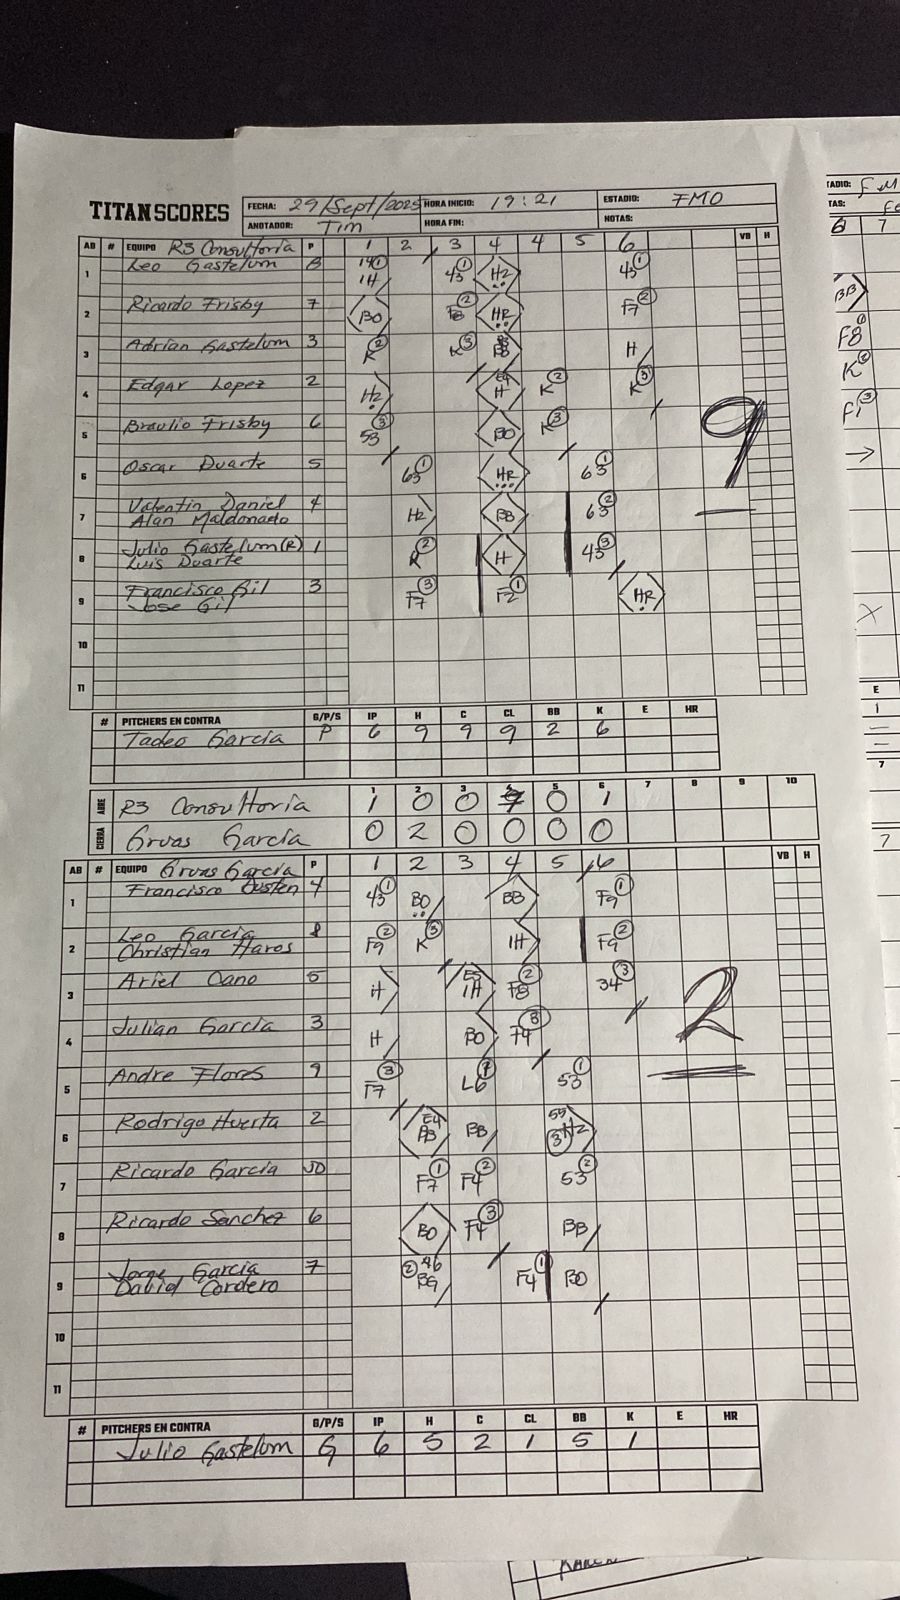 TITANSCORES
FECHA: 29/Sept/2025 HORA INICIO: 19:21 ESTADIO: FMO
ANOTADOR: Tim HORA FIN: NOTAS:
AB # EQUIPO R3 Consultoria P 1 2 3 4 4 5 6 VB H
1 Leo Gastelum 8 1H 43① H2 43①
2 Ricardo Frisby 7 BO F8② HR F7②
3 Adrian Gastelum 3 K② K③ BB H
4 Edgar Lopez 2 H2 E4 H K② K③
5 Braulio Frisby 6 53③ BO K③
6 Oscar Duarte 5 63① HR 63①
7 Valentin Daniel 4 H2 BB 63②
Alan Maldonado
8 Julio Gastelum(R) 1 K② H 43③
Luis Duarte
9 Francisco Gil 3 F7③ F2① HR
Jose Gil
10
11
9
# PITCHERS EN CONTRA G/P/S IP H C CL BB K E HR
Tadeo Garcia P 6 9 9 9 2 6
1 2 3 4 5 6 7 8 9 10
ABRE R3 Consultoria 1 0 0 7 0 1
CIERRA Gruas Garcia 0 2 0 0 0 0
AB # EQUIPO Gruas Garcia P 1 2 3 4 5 6 VB H
1 Francisco 4 43① BO BB F9①
2 Leo Garcia 8 F9② K③ 1H F9②
Christian Haros
3 Ariel Cano 5 H E5 1H F8② 34③
4 Julian Garcia 3 H BO F4③
5 Andre Flores 9 F7③ L6① 53①
6 Rodrigo Huerta 2 E4 BB BB H2
7 Ricardo Garcia F7① F4② 53②
8 Ricardo Sanchez 6 BO F4③ BB
9 Jorge Garcia 7 ② 46 F4① BO
David Cordero
10
11
2
# PITCHERS EN CONTRA G/P/S IP H C CL BB K E HR
Julio Gastelum G 6 5 2 1 5 1
TADIO:
TAS:
7
BB
F8①
K②
F1③
E
1
7
7